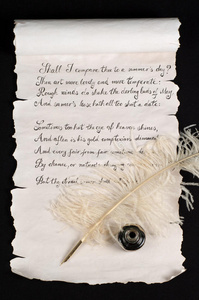 Shall I compare thee to a summer's day?
Thou art more lovely and more temperate:
Rough winds do shake the darling buds of May
And summer's lease hath all too short a date:
Sometimes too hot the eye of heaven shines,
And often is his gold complexion
And every fair from fair sometime
By chance, or nature's
But